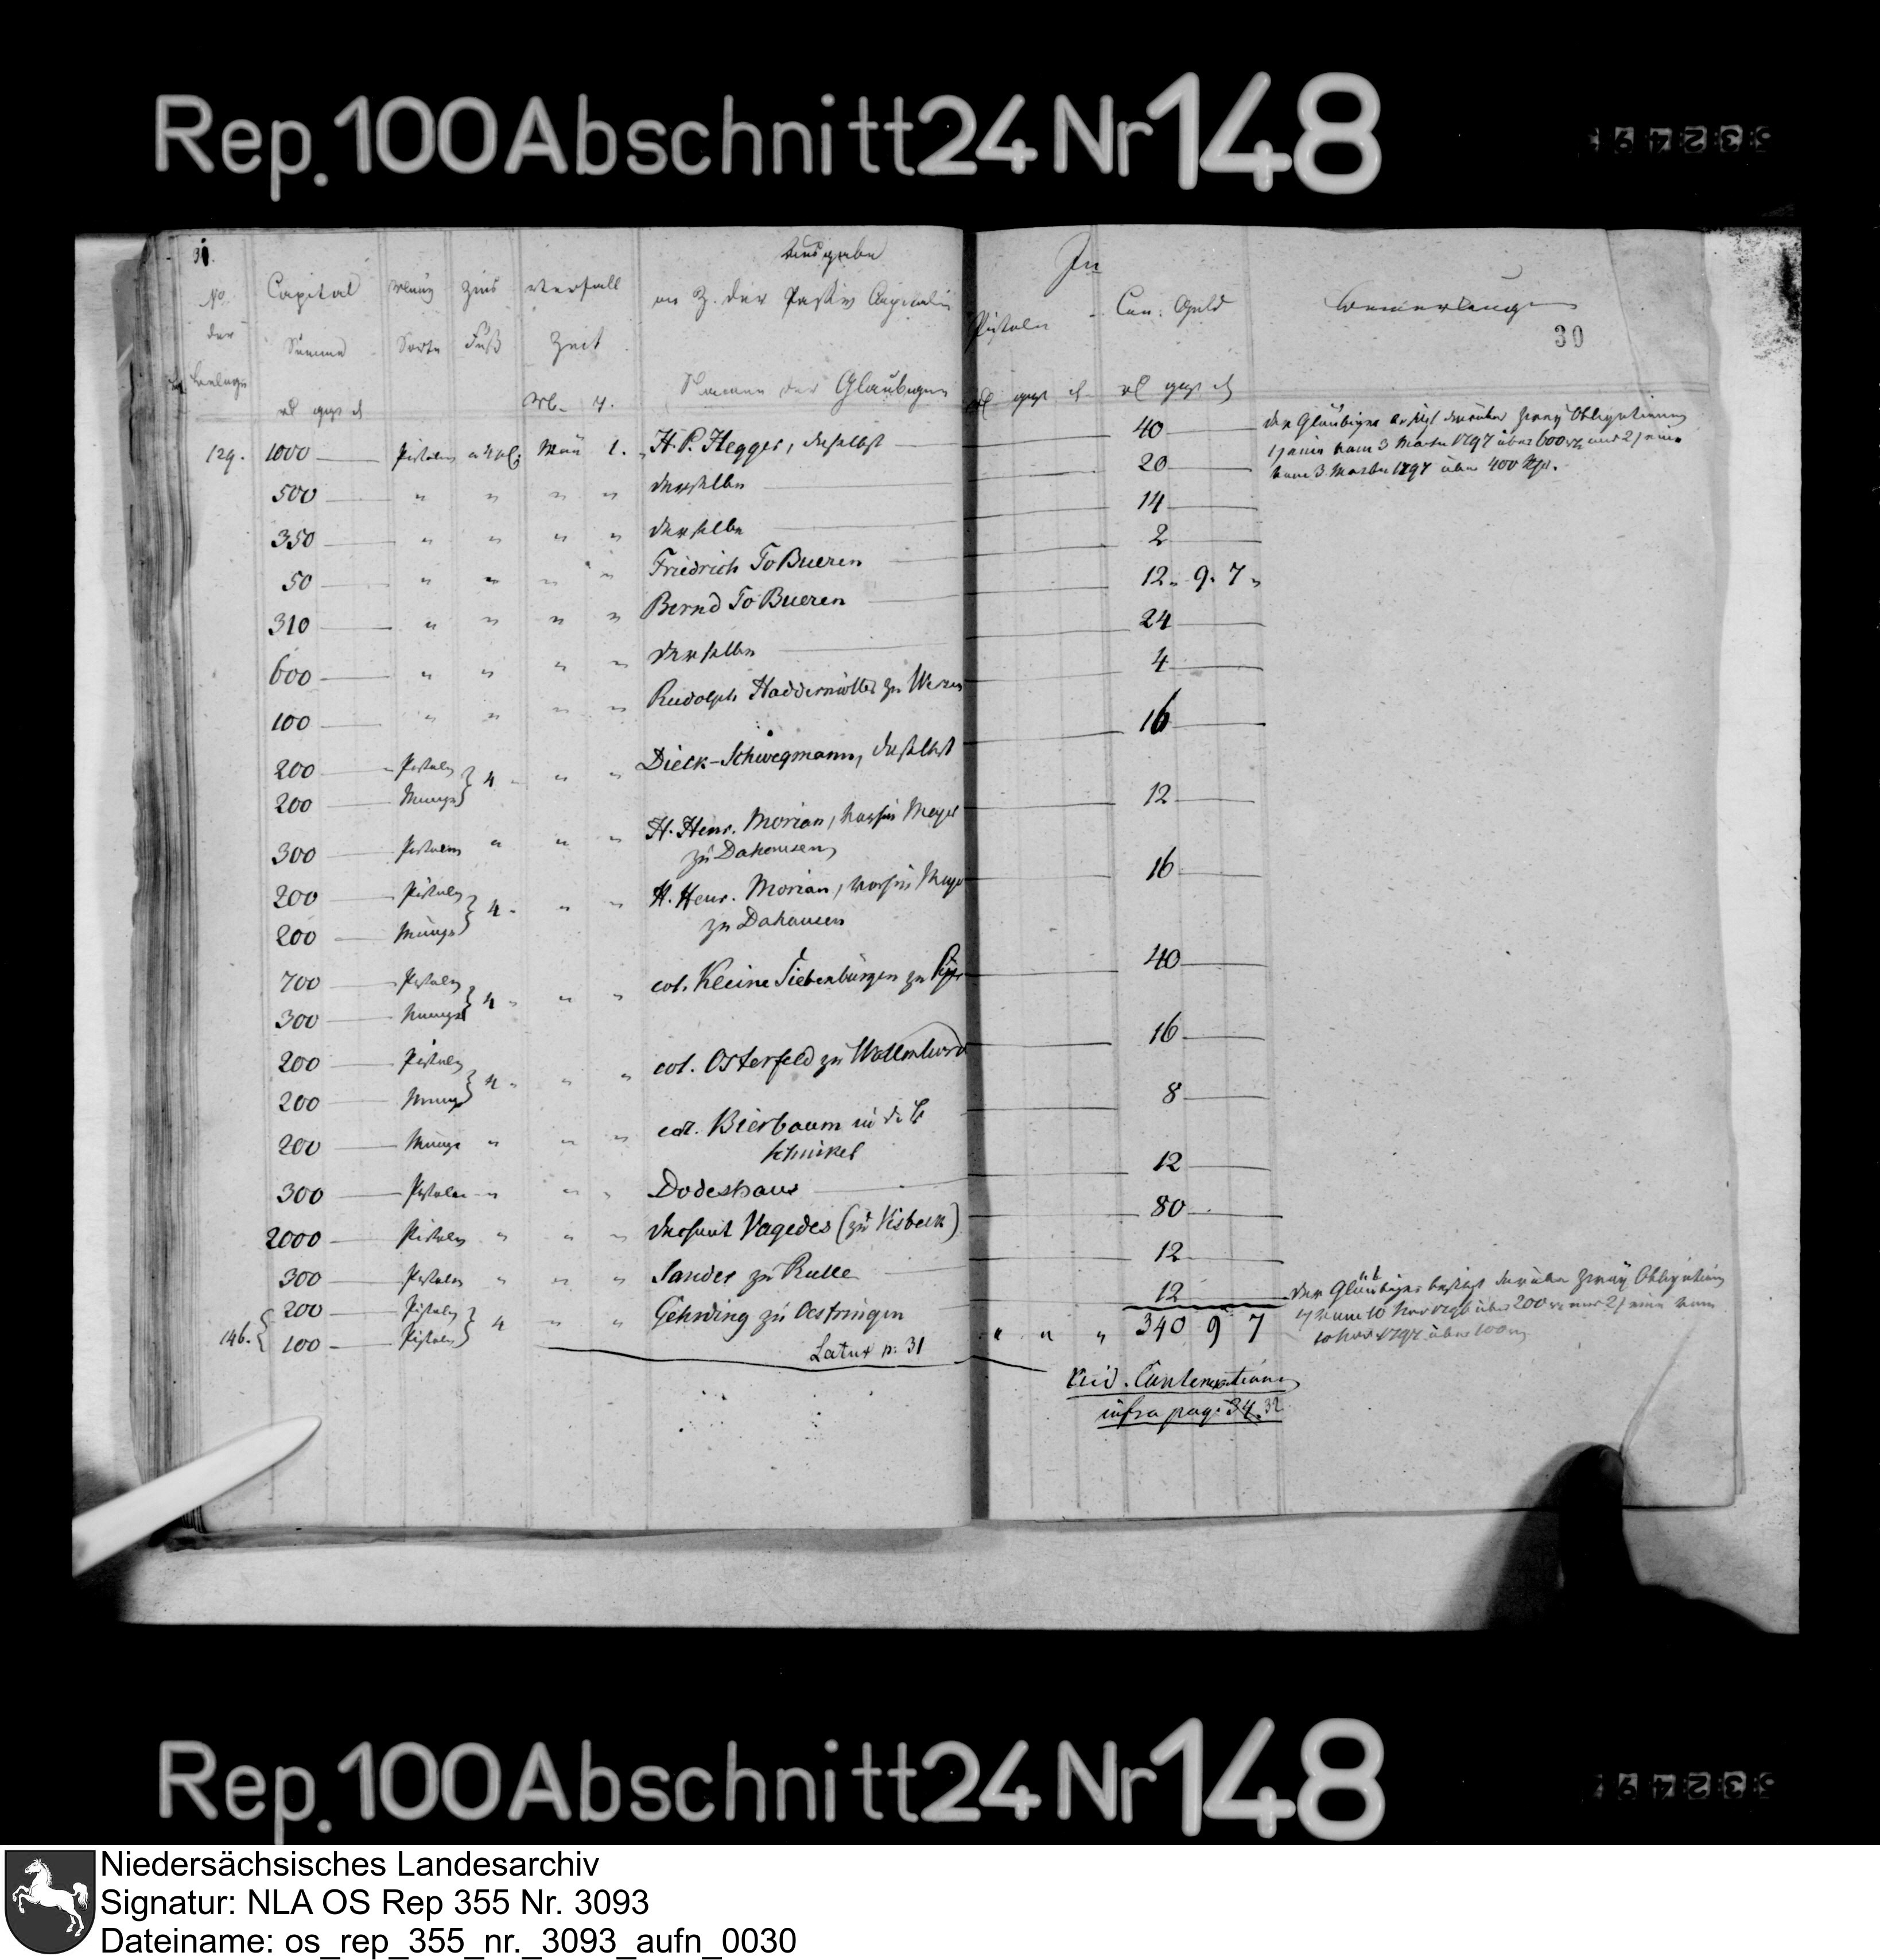 Rep. 100 Abschnitt 24 Nr 148
31.
Ausgabe
In
No. Capital Münz Zins Verfall an Z. der Passiv Capitalien Pistolen Con: Geld Bemerkung
30
der Summe Sorte Fuß Zeit
Beelage Namen der Glaubigere
129. 1000 Pistolen a 4 Mai 1. H. P. Hegger, daselbst 40
500 " " " " derselbe 20
350 " " " " derselbe 14
50 " " " " Friedrich To Bueren 2
310 " " " " Bernd To Bueren 12 " 9 " 7 "
600 " " " " derselbe 24
100 " " " " Rudolph Haddernotter zu 4
200 Pistolen } 4 " " " Dielk-Schwegmann, daselbst 16
200 Münze
300 Pistolen " " " H. Henr. Morian, vorhin Meyer 12
zu Dahausen
200 Pistolen } 4 " " " H. Henr. Morian, vorhin Meyer 16
200 Münze zu Dahausen
700 Pistolen } 4 " " " col. Kleine Siebenbürgen zu 40
300 Münze
200 Pistolen } 4 " " " col. Osterfeld zu 16
200 Münze
200 Münze " " " col. Bierbaum in der 8
Schinkel
300 Pistolen " " " Dodeshaus 12
2000 Pistolen " " " Vagedes (zu Visbeck) 80
300 Pistolen " " " Sander zu Rulle 12
146. { 200 Pistolen } 4 " " Gehrding zu Oestringen 12
100 Pistolen
Latus p: 31 " " " 340 9 7
der Gläubiger besitzt darüber zwey Obligationen
1) eine vom 3 Martii 1797 über 600 und 2) eine
vom 3 Martii 1797 über 400
der Gläubiger besitzt darüber zwey Obligationen
1) vom 10 Nov 1796 über 200 und 2) eine vom
10 Nov 1797 über 100
Vid. 
infra pag: 34. 32
Rep. 100 Abschnitt 24 Nr 148
Niedersächsisches Landesarchiv
Signatur: NLA OS Rep 355 Nr. 3093
Dateiname: os_rep_355_nr._3093_aufn_0030